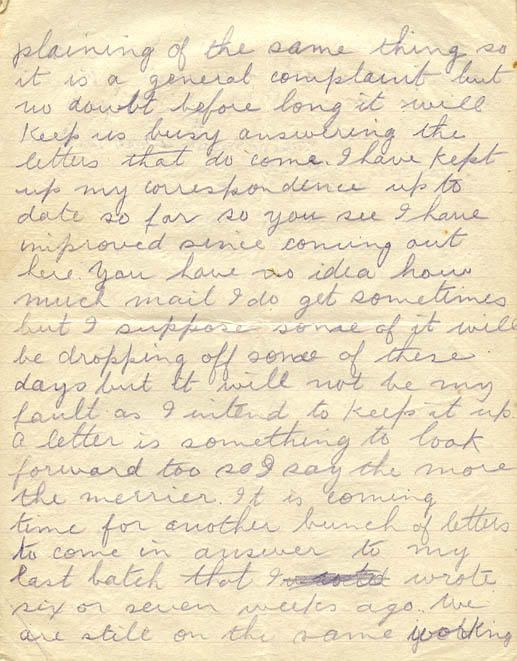 plaining of the same thing so
it is a general complaint but
no doubt before long it will
keep us busy answering the
letters that do come. I have kept
up my correspondence up to
date so far so you see I have
improved since coming out
here. You have no idea how
much mail I do get sometimes
but I suppose some of it will
be dropping off some of these
days but it will not be my
fault as I intend to keep it up
a letter is something to look
forward too so I say the more
the merrier. It is coming
time for another bunch of letters
to come in answer to my
last batch that I wrote
six or seven weeks ago. We
are still on the same working